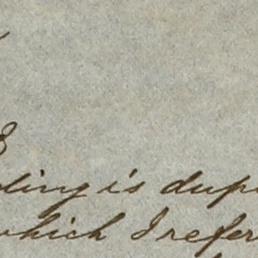 ding is dup
which I refer